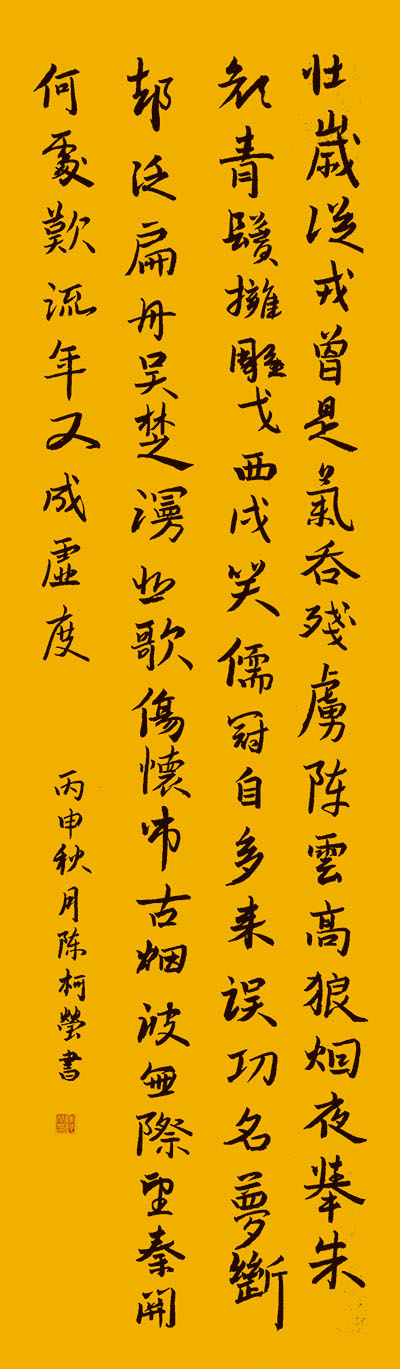 壯歲從戎曾是氣吞殘虜陣雲高狼烟夜舉朱
顏青鬢擁雕戈西戍笑儒冠自多来误功名夢斷
却泛扁舟吴楚漫悲歌傷懷吊古烟波無際望秦関
何處歎流年又成虛度
丙申秋月陈柯瑩書